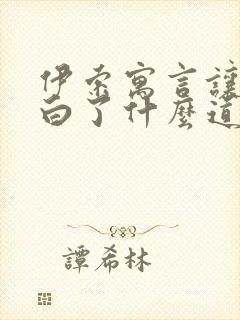 伊索寓言讓
白了什麼道
譚希林